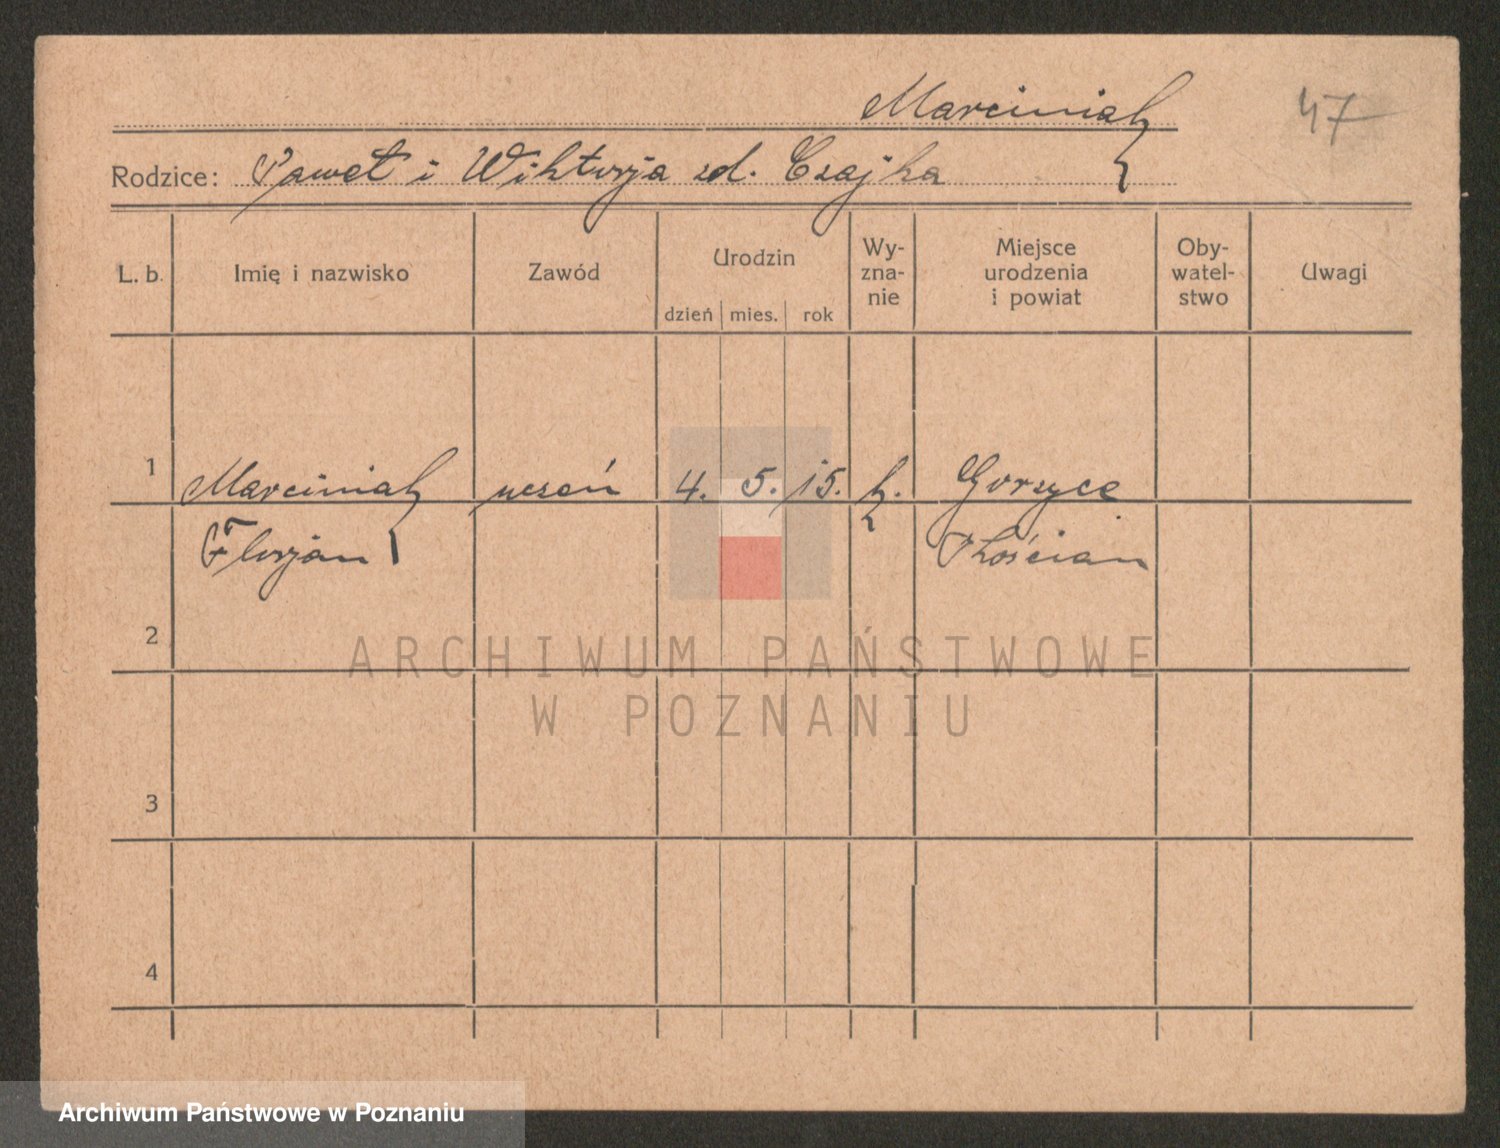 Marciniak 47
Rodzice: Paweł i Wiktorja zd. Czajka
L. b. Imię i nazwisko Zawód Urodzin Wy-zna-nie Miejsce urodzenia i powiat Oby-watel-stwo Uwagi
dzień mies. rok
1 Marciniak uczeń 4. 5. 15. k. Gorzyce
Florjan Kościan
2
ARCHIWUM PAŃSTWOWE
W POZNANIU
3
4
Archiwum Państwowe w Poznaniu